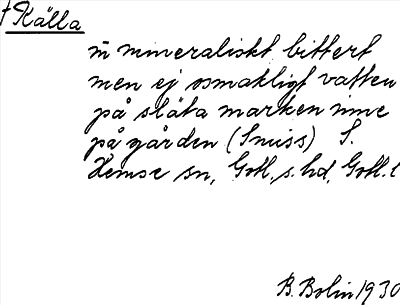 † Källa
m mineraliskt bittert
men ej osmakligt vatten
på släta marken inne
på gården (Smiss) S.
Hemse sn, Gotl. s. hd, Gotl. l
B. Bolin 1930